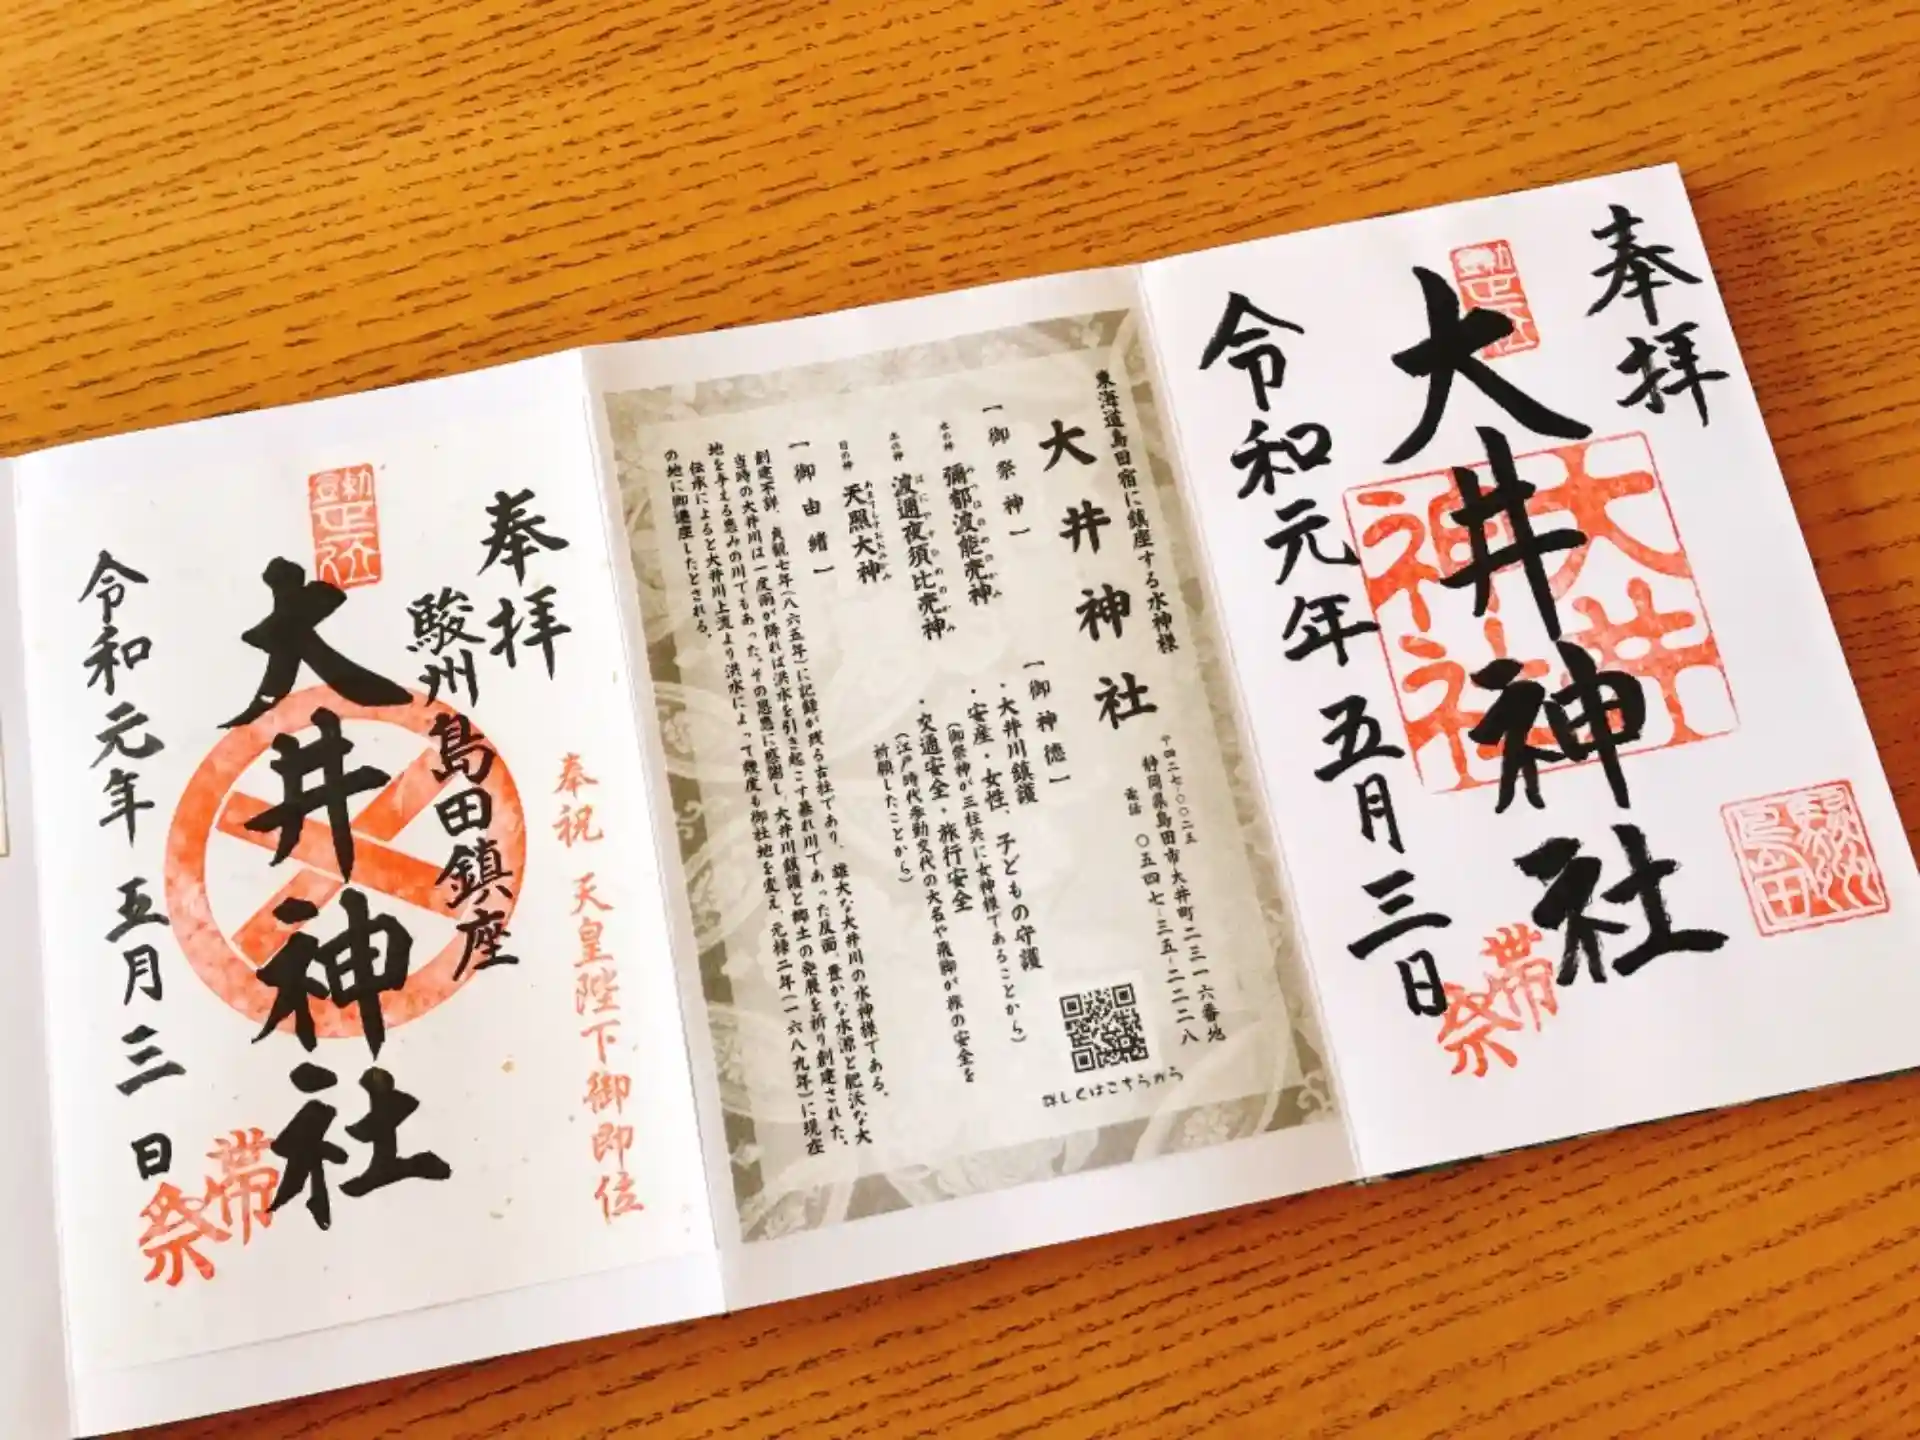 奉拝
大井神社
令和元年五月三日
大井神社
帯祭
東海道島田宿に鎮座する水神様
大井神社
〒四二七-〇〇二五
静岡県島田市大井町二三一六番地
電話 〇五四七-三五-二二二八
【御祭神】
水の神 彌都波能売神
土の神 波邇夜須比売神
日の神 天照大神
【御神徳】
・大井川鎮護
・安産・女性、子どもの守護
(御祭神が三柱共に女神様であることから)
・交通安全・旅行安全
(江戸時代参勤交代の大名や飛脚が旅の安全を
祈願したことから)
詳しくはこちらから
【御由緒】
創建不詳、貞観七年(八六五年)に記録が残る古社であり、雄大な大井川の水神様である。
当時の大井川は一度雨が降れば洪水を引き起こす暴れ川であった反面、豊かな水源と肥沃な大
地を与える恵みの川でもあった。その恩恵に感謝し、大井川鎮護と郷土の発展を祈り創建された。
伝承によると大井川上流より洪水によって幾度も御社地を変え、元禄二年(一六八九年)に現在
の地に御遷座したとされる。
奉祝 天皇陛下御即位
奉拝
駿州島田鎮座
大井神社
令和元年五月三日
帯祭